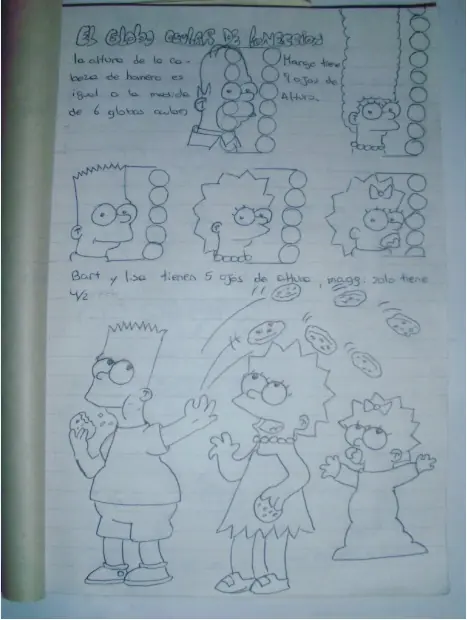 EL Globo OCULAR DE
la altura de la ca-
beza de homero es
igual a la medida
de 6 globos
Marge tiene
9 ojos de
Altura.
Bart y lisa tienen 5 ojos de altura, maggi solo tiene
4/2